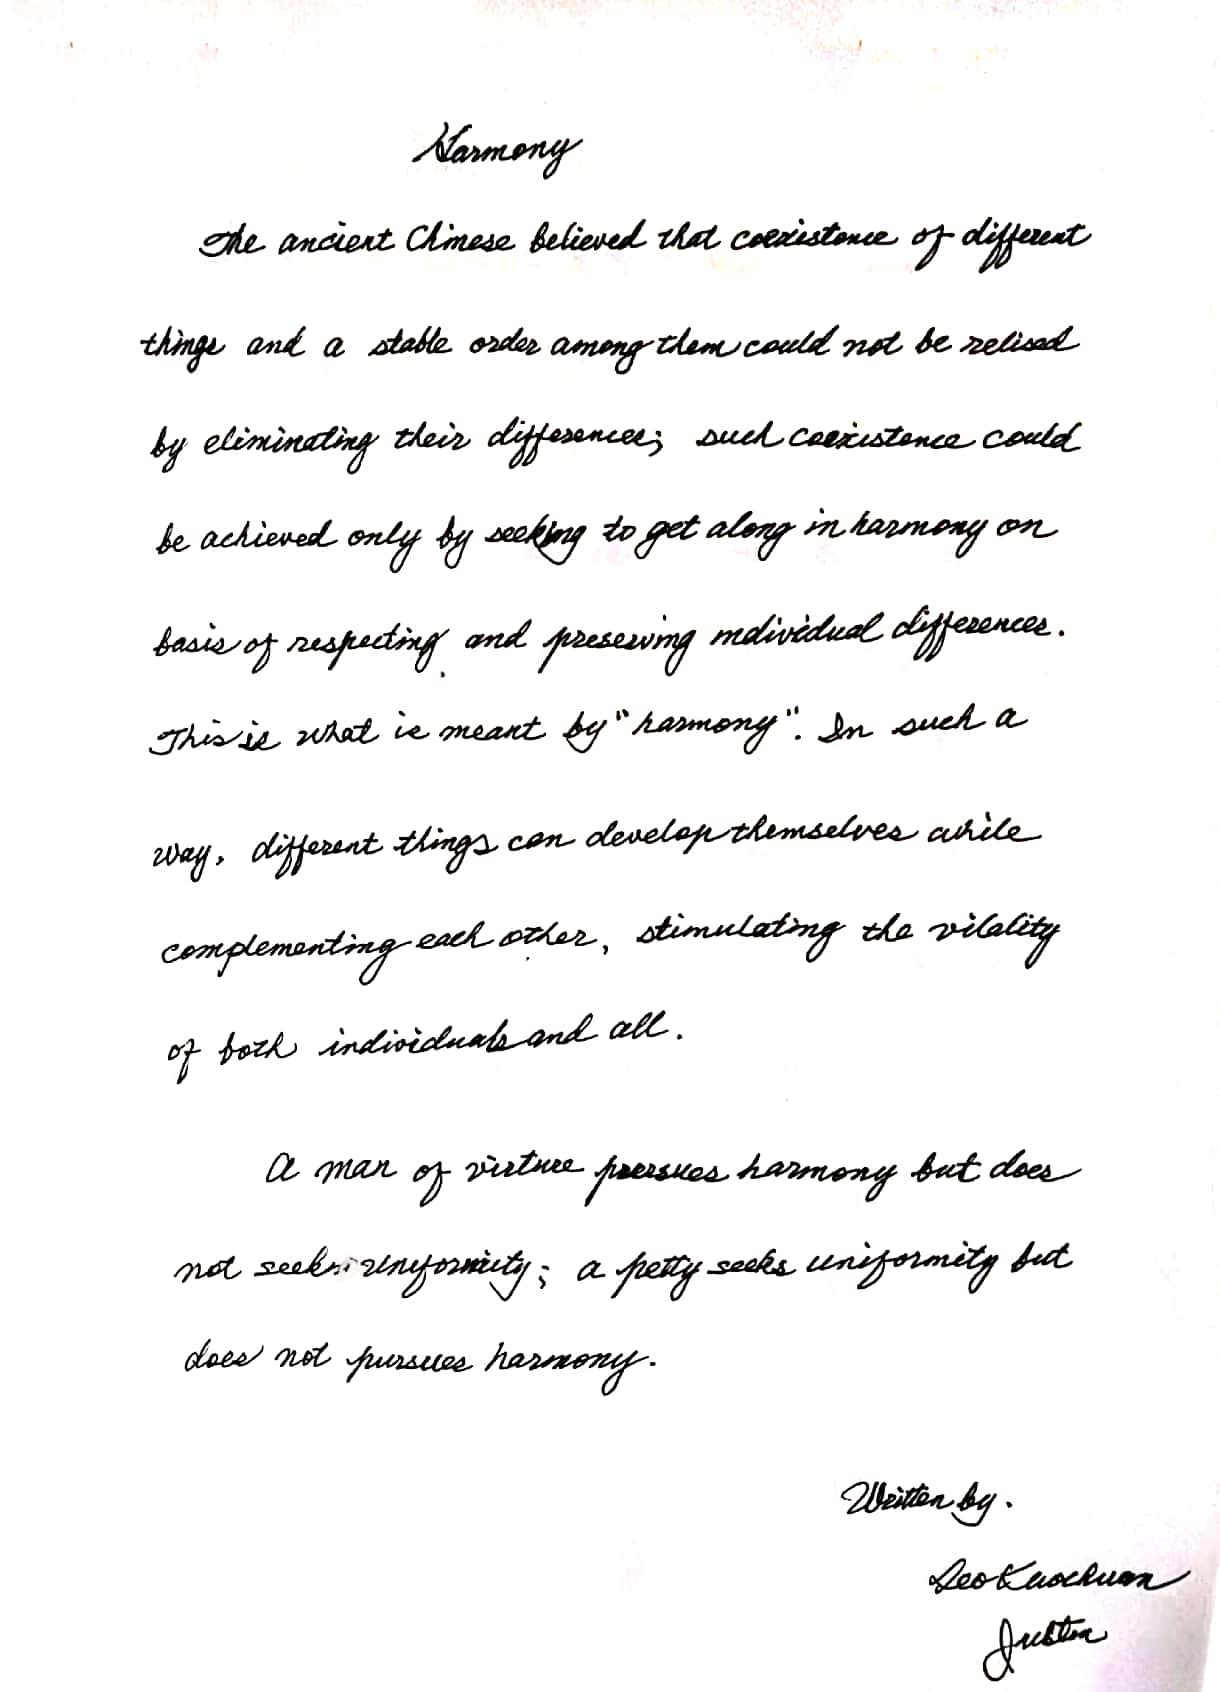 Harmony
The ancient Chinese believed that coexistence of different
things and a stable order among them could not be relised
by eliminating their differences; such coexistence could
be achieved only by seeking to get along in harmony on
basis of respecting and preserving individual differences.
This is what is meant by "harmony". In such a
way, different things can develop themselves while
complementing each other, stimulating the vitality
of both individuals and all.
A man of virture persues harmony but does
not seek uniformity; a petty seeks uniformity but
does not pursues harmony.
Written by.
Justin